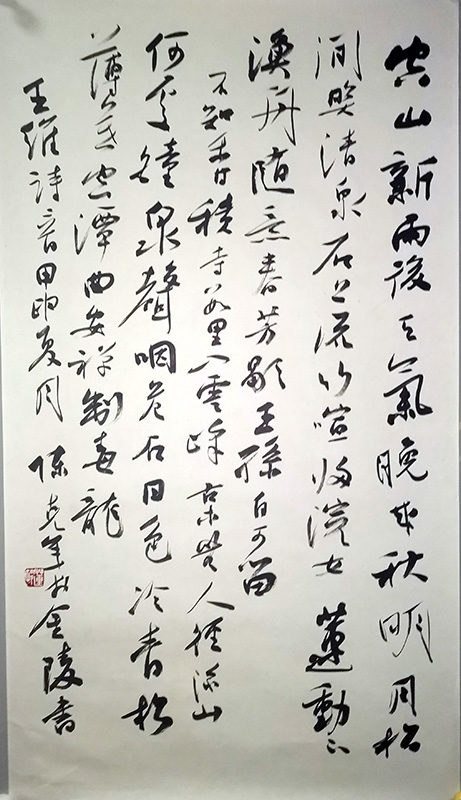 空山新雨後天氣晚来秋明月松
间照清泉石上流竹喧归浣女蓮動下
漁舟随意春芳歇王孫自可留
不知香積寺数里入雲峰古木無人徑深山
何處鐘泉聲咽危石日色冷青松
薄暮空潭曲安禅制毒龍
王維诗二首甲申夏月陈克年於金陵書